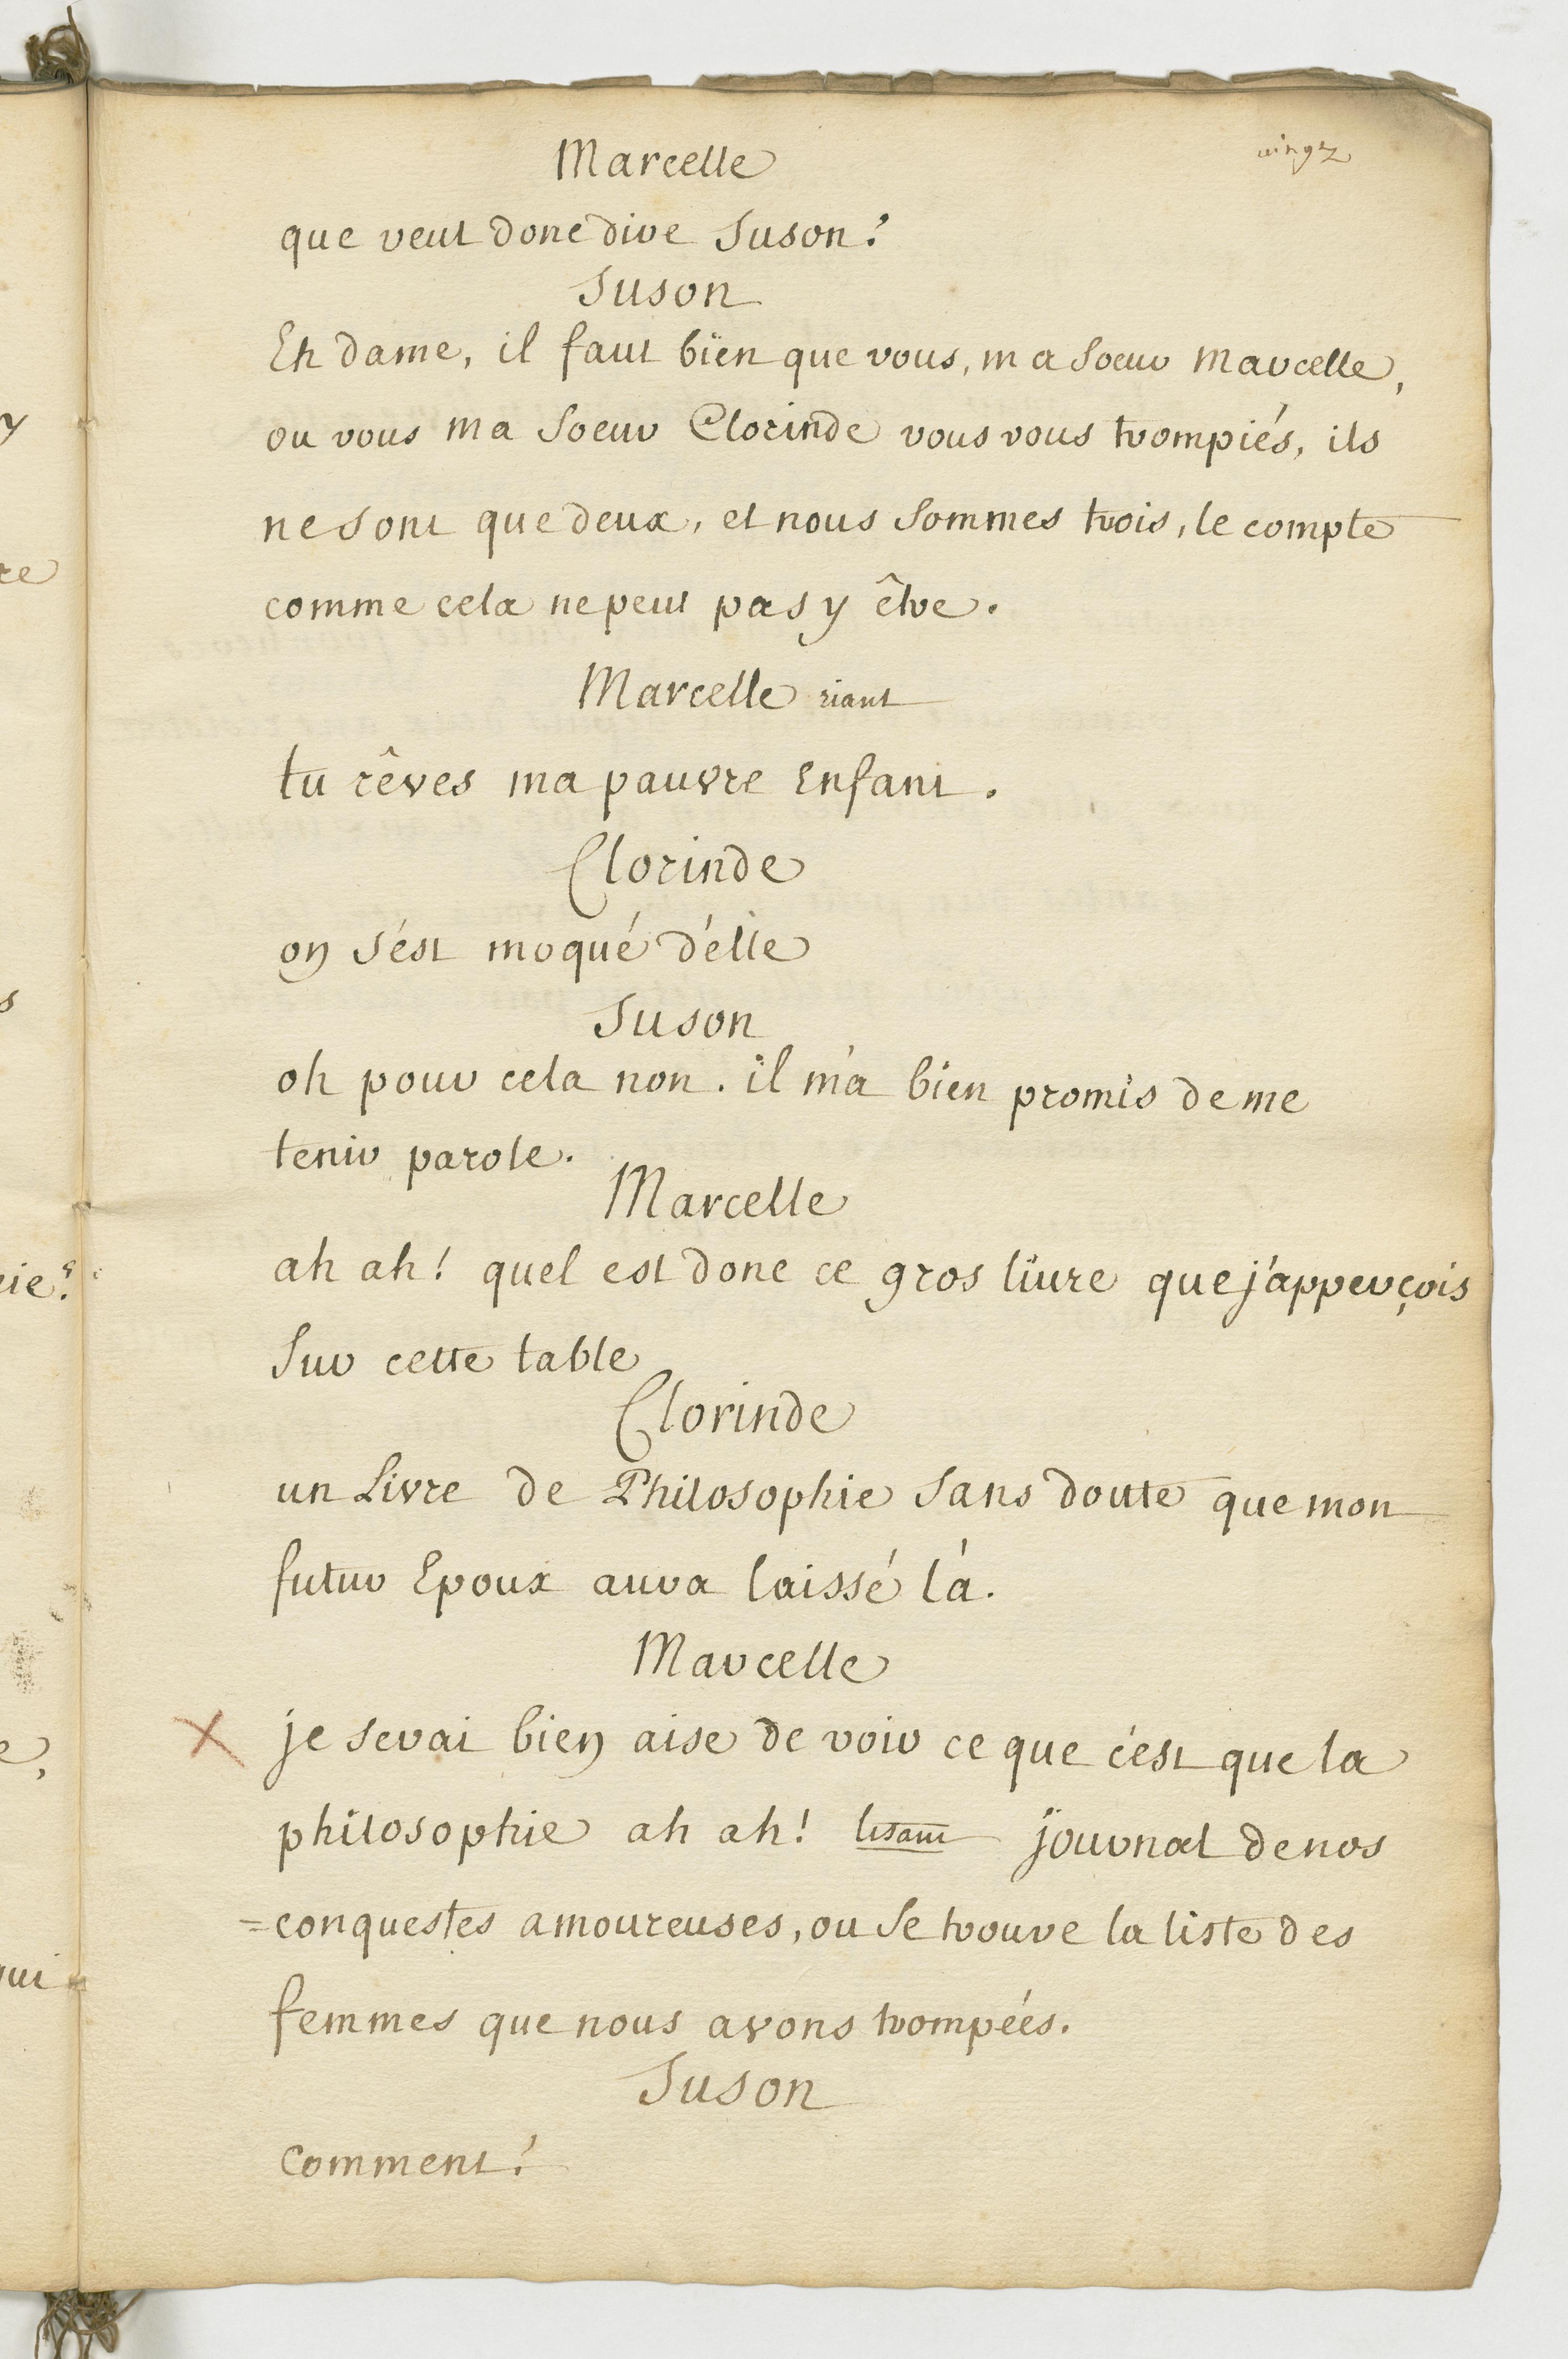 vingt
Marcelle
que veut donc dire Suson?
Suson
Eh dame, il faut bien que vous, ma Soeur Marcelle,
ou vous ma Soeur Clorinde vous vous trompiés, ils
ne sont que deux, et nous sommes trois, le compte
comme cela ne peut pas y être.
Marcelle riant
tu rêves ma pauvre Enfant.
Clorinde
on s'ést moqué d'élle
Suson
oh pour cela non. il m'a bien promis de me
tenir parole.
Marcelle
ah ah! quel est donc ce gros livre que j'apperçois
Sur cette table
Clorinde
un Livre de Philosophie Sans doute que mon
futur Epoux aura laissé là.
Marcelle
X je serai bien aise de voir ce que c'ést que la
philosophie ah ah! lisant journal de nos
=conquestes amoureuses, ou Se trouve la liste des
femmes que nous avons trompées.
Suson
Comment?